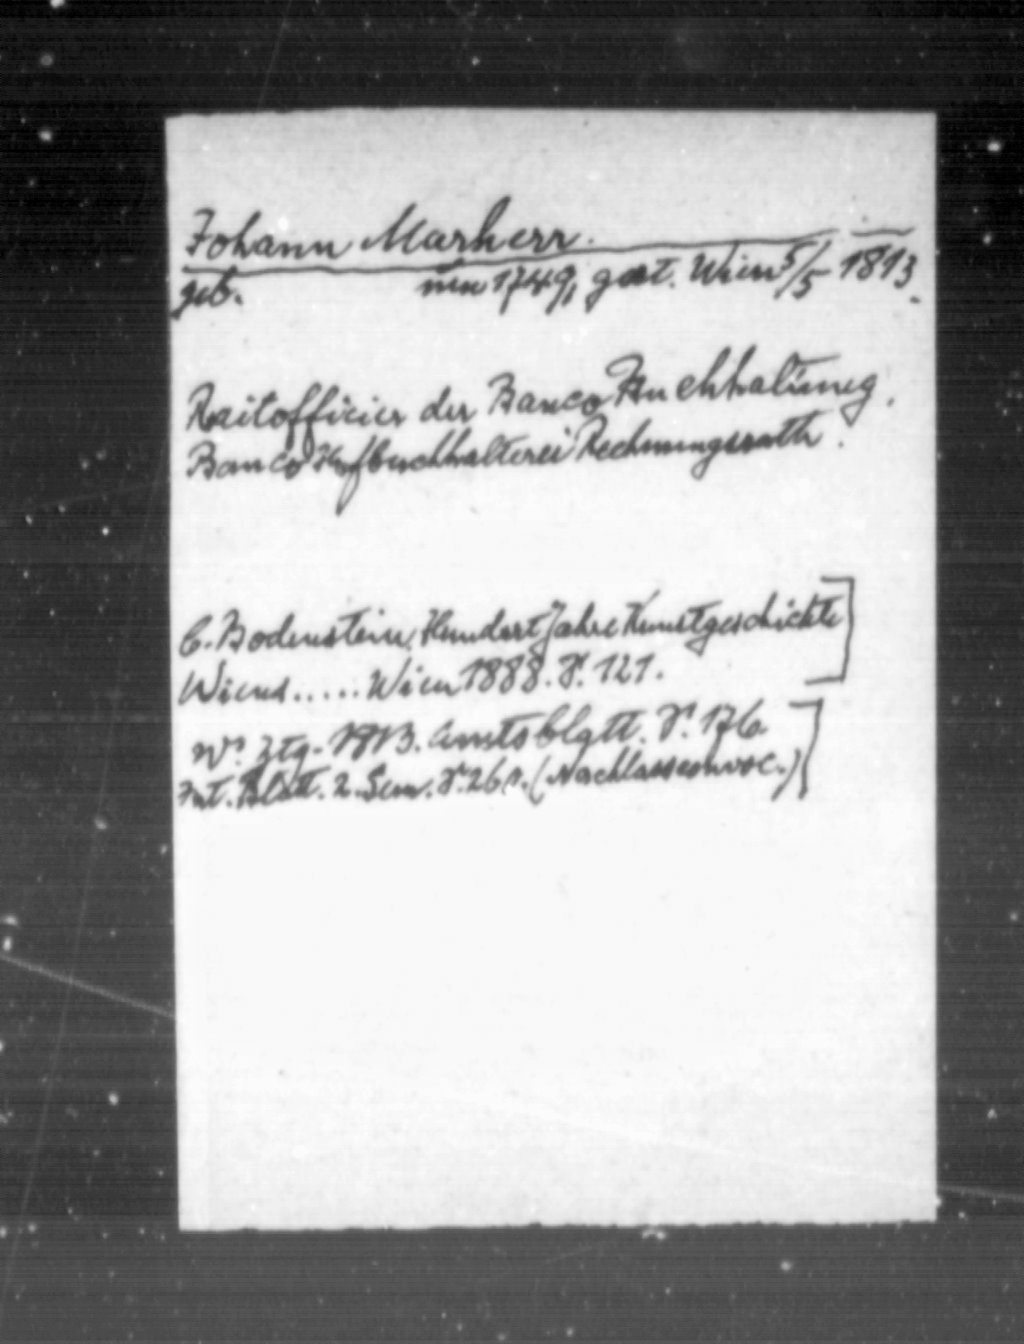 Johann Marherr.
geb. um 1749, gest. Wien 5/5 1813.
Raitofficier der Banco Buchhaltung.
Banco Hofbuchhalterei Rechnungsrath.
C. Bodenstein, Hundert Jahre Kunstgeschichte
Wiens ..... Wien 1888. S. 121.
Wr. Ztg. 1813. Amtsblatt. S. 176.
Int. Blatt. 2. Sem. S. (Nachlassconvoc.)